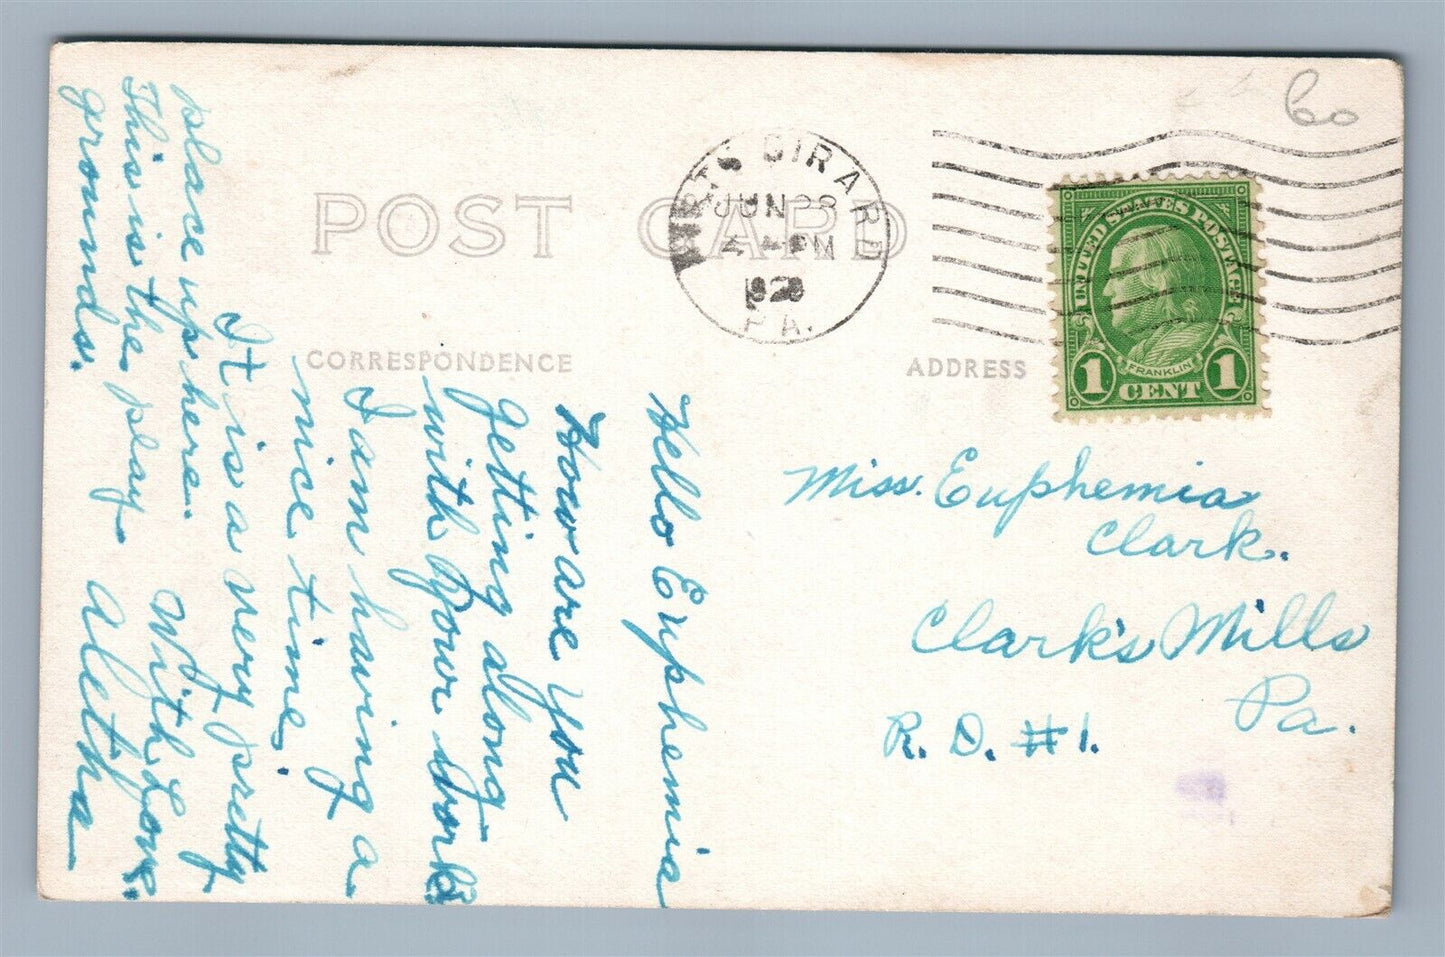 60
POST CARD
GIRARD
JUN 28
PM
1928
PA.
UNITED STATES POSTAGE
FRANKLIN
1 CENT 1
CORRESPONDENCE
ADDRESS
Hello Euphemia
How are you
getting along
with your work
I am having a
nice time,
It is a very pretty
place up here. With Love.
This is the play
grounds. Aletha
Miss. Euphemia
Clark.
Clark's Mills
Pa.
R. D. #1.